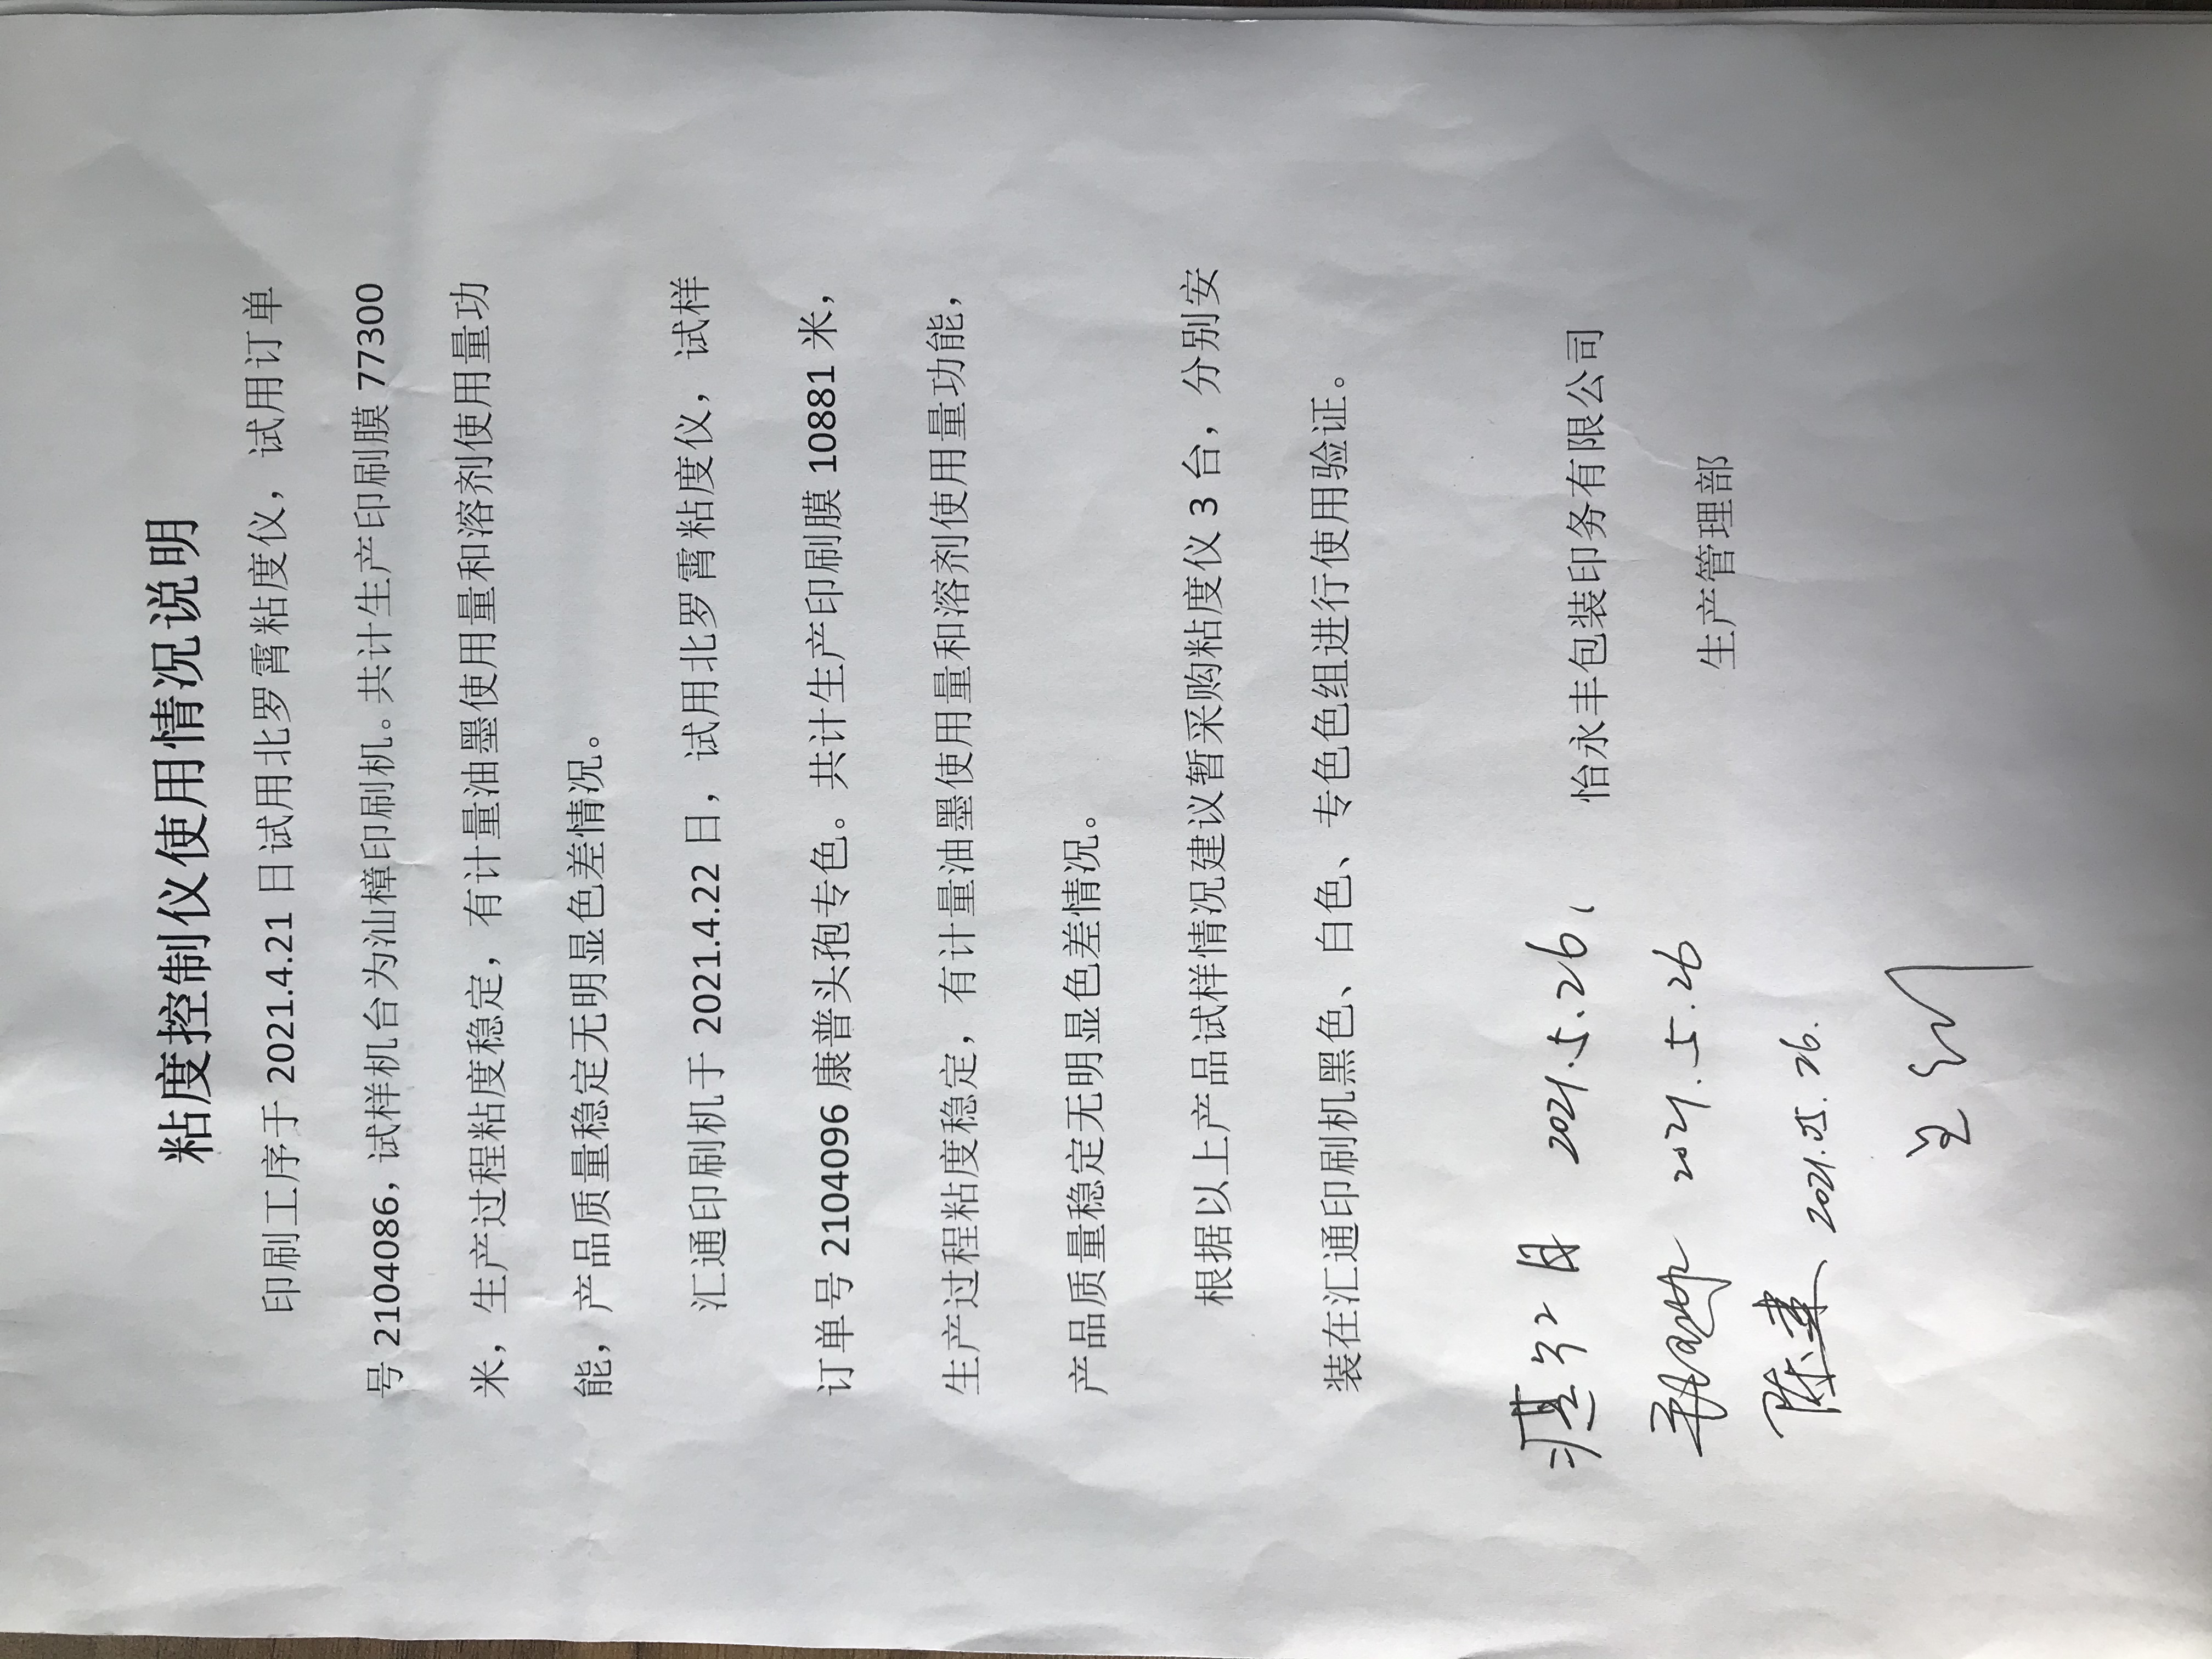 粘度控制仪使用情况说明
印刷工序于 2021.4.21 日试用北罗霄粘度仪，试用订单
号 2104086，试样机台为汕樟印刷机。共计生产印刷膜 77300
米，生产过程粘度稳定，有计量油墨使用量和溶剂使用量功
能，产品质量稳定无明显色差情况。
汇通印刷机于 2021.4.22 日，试用北罗霄粘度仪，试样
订单号 2104096 康普头孢专色。共计生产印刷膜 10881 米，
生产过程粘度稳定，有计量油墨使用量和溶剂使用量功能，
产品质量稳定无明显色差情况。
根据以上产品试样情况建议暂采购粘度仪 3 台，分别安
装在汇通印刷机黑色、白色、专色色组进行使用验证。
怡永丰包装印务有限公司
生产管理部
2021.5.26
2021.5.26
陈建 2021.05.26.